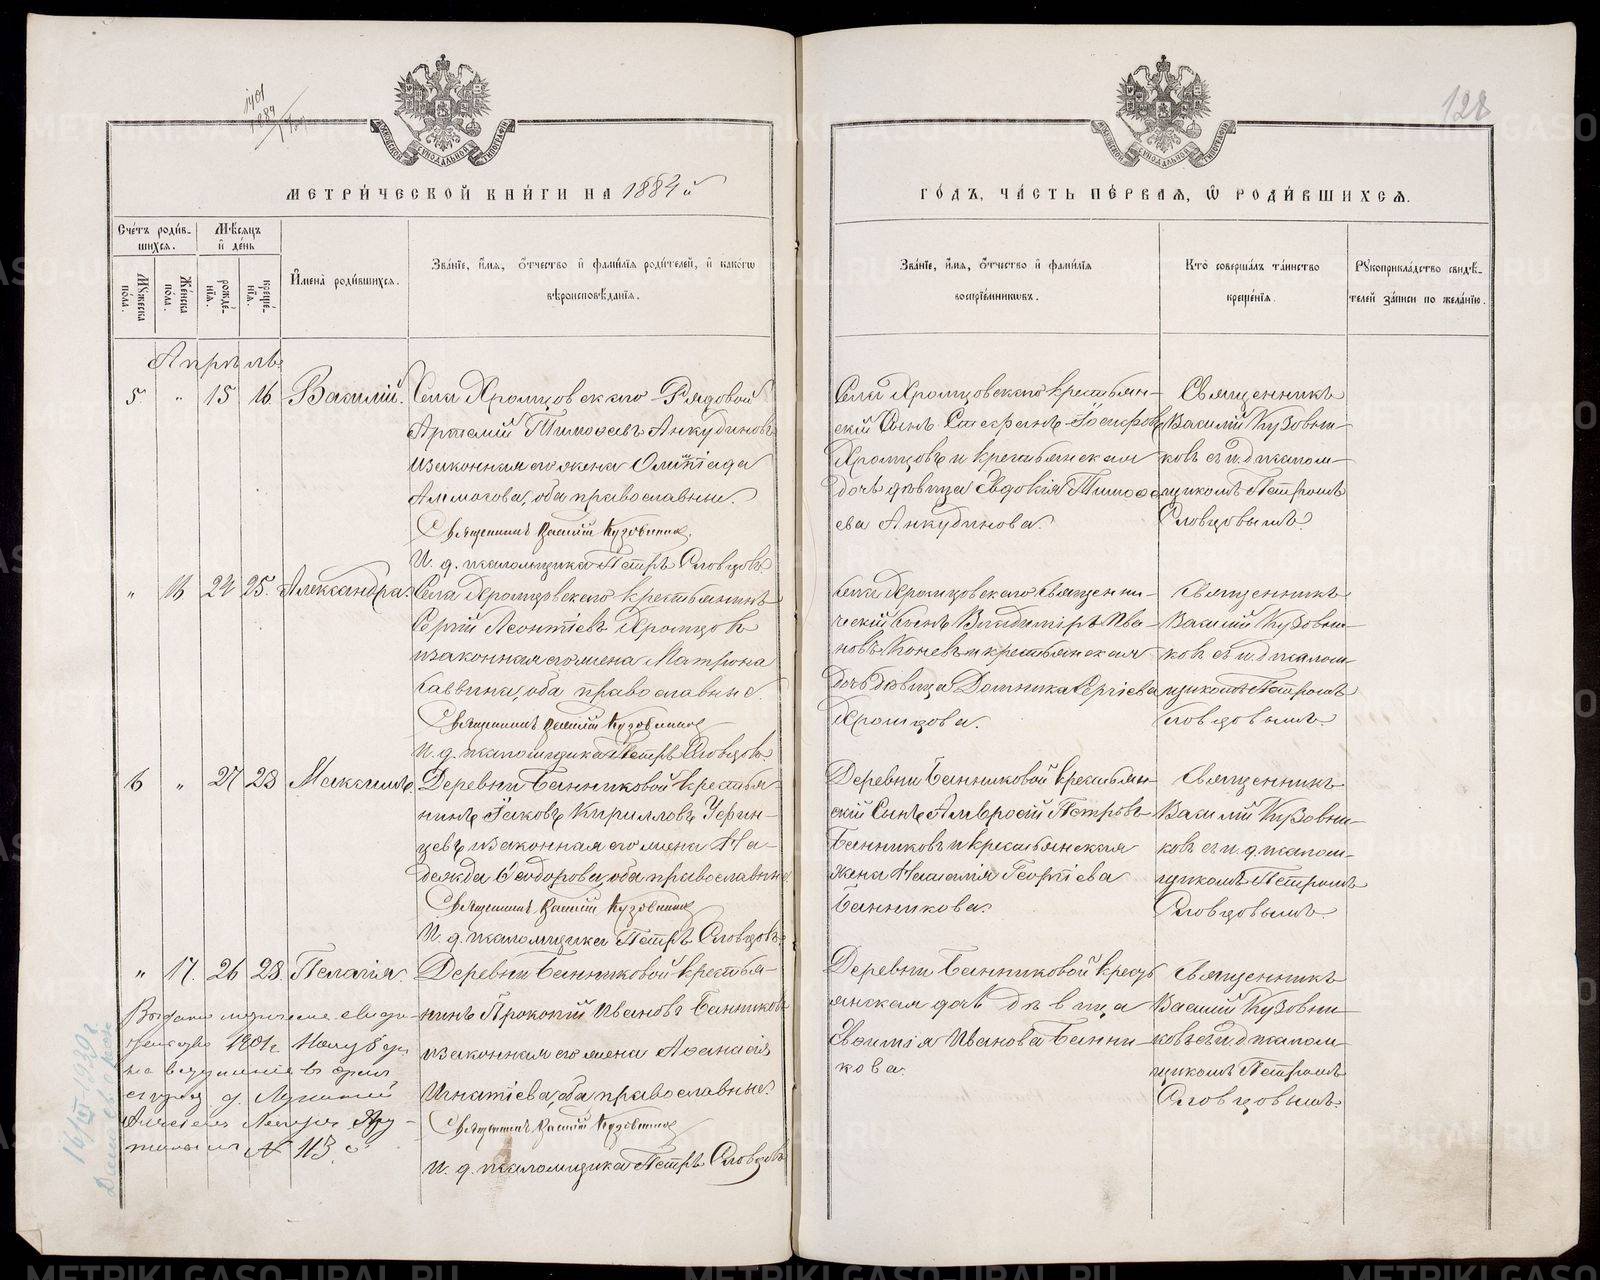 128
МОСКОВСКОЙ СѴНОДАЛЬНОЙ ТИПОГРАФІИ
МЕТРИ́ЧЕСКОЙ КНИ́ГИ НА 1884й
Сче́тъ роди́в-
шихся.
Мѣ́сяцъ
и҆ де́нь
Мꙋ́жеска
по́ла.
Же́нска
по́ла.
рожде́-
нїя.
креще́-
нїя.
И҆мена̀ роди́вшихся.
Зва́нїе, и҆́мя, ѻ҆́тчество и҆ фами́лїѧ роди́телей, и҆ како́гѡ
вѣроисповѣ́данїѧ.
Апрѣль
5 " 15 16 Василій. Села Хромцовскаго Рядовой
Артемій Тимоѳеевъ Анкудиновъ
и законная его жена Олимпіада
Аммосова, оба православные.
Священникъ Василій Кузовниковъ
И. д. псаломщика Петръ Словцовъ
" 16 24 25. Александра. Села Хромцовскаго крестьянинъ
Сергій Леонтіевъ Хромцовъ
и законная его жена Матрона
Саввина, оба православные.
Священникъ Василій Кузовниковъ
И. д. псаломщика Петръ Словцовъ
6 " 27 28 Максимъ. Деревни Банниковой крестья-
нинъ Іаковъ Кирилловъ Уфин-
цевъ и законная его жена На-
дежда Ѳеодорова, оба православные.
Священникъ Василій Кузовниковъ
И. д. псаломщика Петръ Словцовъ
" 17. 26 28. Пелагія. Деревни Банниковой крестья-
нинъ Прокопій Ивановъ Банниковъ
и законная его жена Аѳанасія
Игнатіева, оба православные.
Священникъ Василій Кузовниковъ
И. д. псаломщика Петръ Словцовъ
1901г.
№ 113
16/IX-1920 г.
МОСКОВСКОЙ СѴНОДАЛЬНОЙ ТИПОГРАФІИ
ГО́ДЪ, ЧА́СТЬ ПЕ́РВАЯ, Ѡ҆ РОДИ́ВШИХСѦ.
Зва́нїе, и҆́мя, ѻ҆́тчество и҆ фами́лїѧ
воспрїе́мникѡвъ.
Кто̀ соверша́лъ та́инство
креще́нїѧ.
Рꙋкоприкла́дство свидѣ́-
телей за́писи по жела́нїю.
Села Хромцовскаго крестьян-
скій Сынъ Стефанъ Іосифовъ
Хромцовъ и крестьянская
дочь дѣвица Евдокія Тимоѳе-
ева Анкудинова.
Священникъ
Василій Кузовни-
ковъ съ и. д. псалом-
щикомъ Петромъ
Словцовымъ.
Села Хромцовскаго Священни-
ческій Сынъ Владиміръ Ива-
новъ Коневъ и крестьянская
дочь дѣвица Домника Сергіева
Хромцова.
Священникъ
Василій Кузовни-
ковъ съ и. д. псалом-
щикомъ Петромъ
Словцовымъ.
Деревни Банниковой Крестьян-
скій Сынъ Амвросій Петровъ
Банниковъ и крестьянская
жена Наталія Георгіева
Банникова.
Священникъ
Василій Кузовни-
ковъ съ и. д. псалом-
щикомъ Петромъ
Словцовымъ.
Деревни Банниковой Кресть-
янская дочь дѣвица
Евѳимія Иванова Банни-
кова.
Священникъ
Василій Кузовни-
ковъ съ и. д. псалом-
щикомъ Петромъ
Словцовымъ.
METRIKI.GASO-URAL.RU